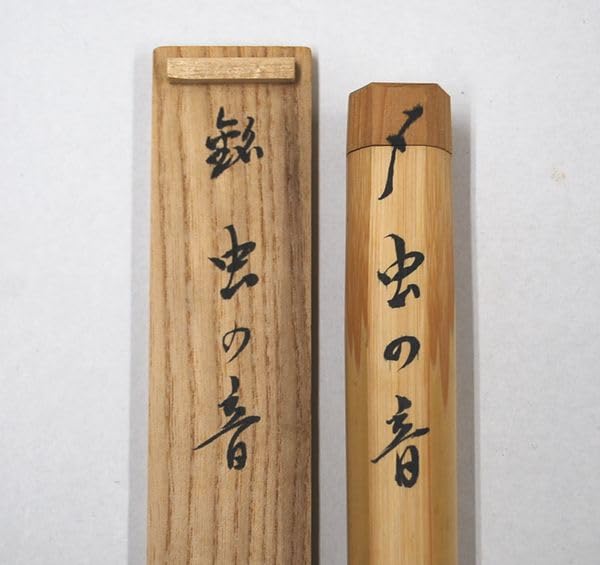 銘 虫の音
〆 虫の音